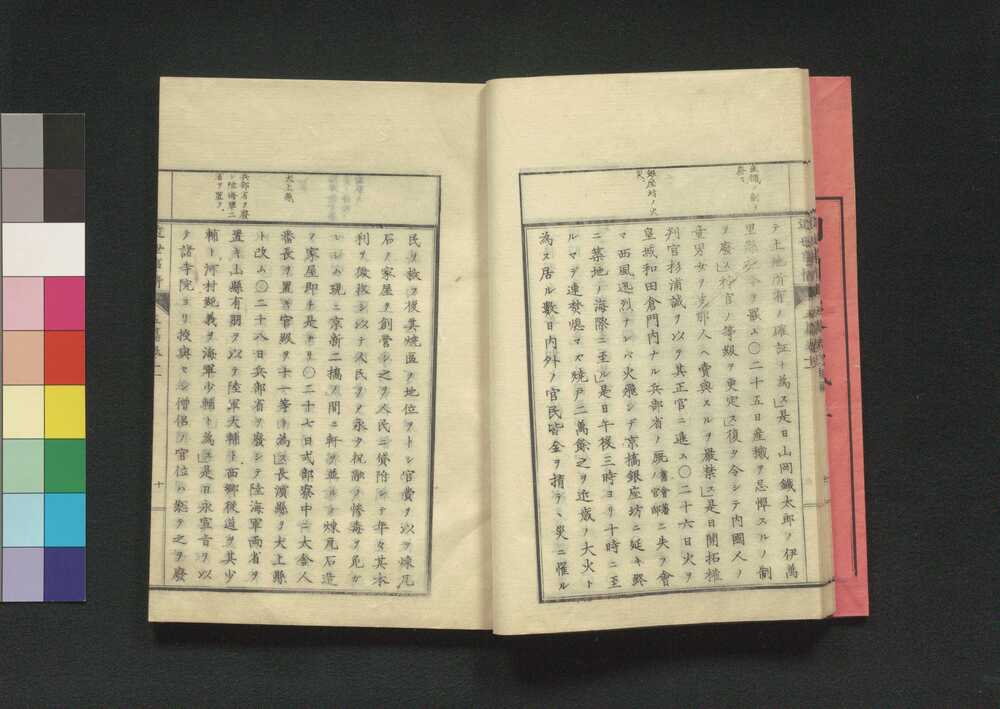 産穢ノ制ヲ
廢ス
銀座坊ノ火
災
テ土地所有ノ確証ト為ス是日山岡鐵太郎ヲ伊萬
里縣
令ヲ罷ム〇二十五日産穢ヲ忌憚スルノ制
ヲ廢ス神官ノ等級ヲ更定ス復タ令シテ内國人ノ
童男女ヲ支那人ヘ賣與スルヲ嚴禁ス是日開拓權
判官杉浦誠ヲ以テ其正官ニ進ム〇二十六日火ヲ
皇城和田倉門内ナル兵部省ノ厩
ニ失フ會
マ西風迅烈ナレバ火飛シテ京橋銀座坊ニ延キ終
ニ築地ノ海隙ニ至ル是日午後三時ヨリ十時ニ至
ルマデ連焚熄マズ燒戸二萬餘之ヲ近歳ノ大火ト
為ス居ル數日内外ノ官民皆金ヲ捐テヽ災ニ罹ル
犬上縣
兵部省ヲ廢
シ陸海軍二
省ヲ置ク
民ヲ救フ後其燒區ヲ地位ヲトシ官費ヲ以テ煉瓦
石ノ家屋ヲ創營シ之ヲ人民ニ貸附シテ年々其本
利ヲ徴
シ以テ人民ヲ
永ク祝融ノ慘毒ヲ免ガ
レシム現ニ京
二橋ノ間ニ軒ヲ並ル煉瓦石造
ヲ家屋即チ是ナリ〇二十七日式部寮中ニ大舎人
番長ヲ置キ官級ヲ十一等ト為ス長濱縣ヲ犬上縣
ト改ム〇二十八日兵部省ヲ廢シテ陸海軍両省ヲ
置キ山縣有朋ヲ以テ陸軍大輔ト西郷從道ヲ其少
輔ト河村純義ヲ海軍少輔ト為ス是日永宣旨ヲ以
テ諸寺院ヨリ授與セシ僧侶ヲ官位ハ
之ヲ廢
十